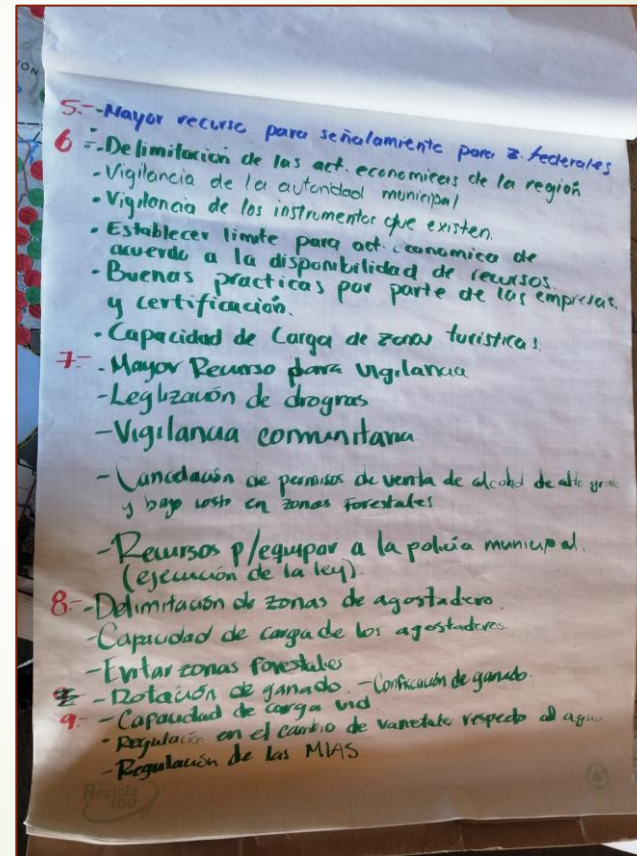 5.- -Mayor recurso para señalamiento para z. federales
6.- -Delimitación de las act. economicas de la región
- Vigilancia de la autoridad municipal
• Vigilancia de los instrumentos que existen.
• Establecer limite para act. economica de
acuerdo a la disponibilidad de recursos.
- Buenas practicas por parte de las empresas
y certificación.
• Capacidad de Carga de zonas turisticas.
7.- - Mayor Recurso para vigilancia
- Leglización de drogras
- Vigilancia comunitaria
- Cancelación de permisos de venta de alcohol de alto
y bajo costo en zonas forestales
- Recursos p/equipar a la policía municipal.
(ejecución de la ley).
8.- -Delimitación de zonas de agostadero.
- Capacidad de carga de los agostaderos
- Evitar zonas forestales
- Rotación de ganado. - Confiscación de ganado.
9.- - Capacidad de carga
- Regulación en el cambio de respecto al agua
- Regulación de las MIAS
Recicla
100